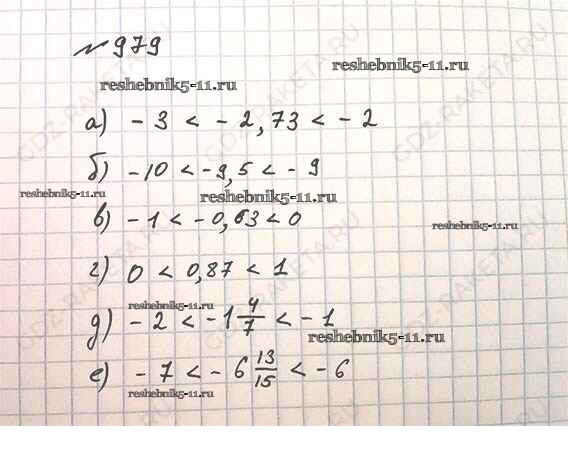 № 979
reshebnik5-11.ru
reshebnik5-11.ru
GDZ-RAKETA.RU
GDZ-RAKETA.RU
а) - 3 < - 2,73 < - 2
б) -10 < -9,5 < - 9
reshebnik5-11.ru
reshebnik5-11.ru
в) -1 < -0,63 < 0
reshebnik5-11.ru
г) 0 < 0,87 < 1
GDZ-RAKETA.RU
GDZ-RAKETA.RU
reshebnik5-11.ru
д) - 2 < -1 4/7 < - 1
reshebnik5-11.ru
е) - 7 < - 6 13/15 < - 6
reshebnik5-11.ru